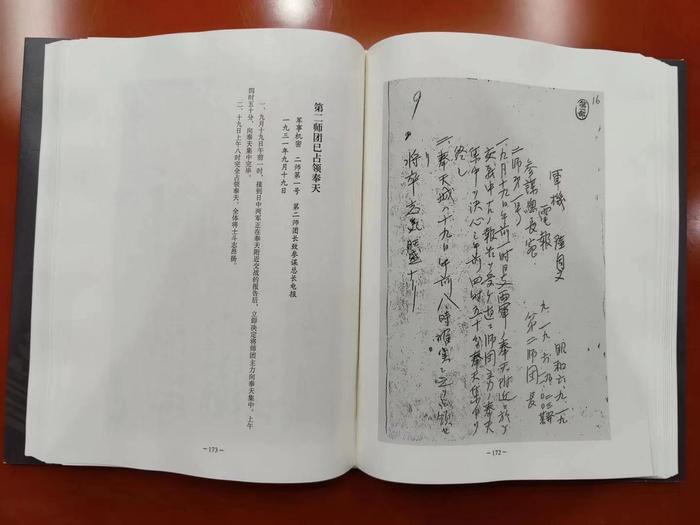 16
軍機
電報
昭和六、九、一九
参謀總長宛
第二師団長
二師第一号
一、九月十九日午前一時日支両軍奉天附近ニ於テ
交戦中
師団主力
奉天
集中
決心
午前四時五十分奉天集中
終
二、奉天城
十九日午前八時確実ニ之
占領セ
リ
9
- 172 -
第二师团已占领奉天
军事机密 二师第一号 第二师团长致参谋总长电报
一九三一年九月十九日
一、九月十九日午前一时,接到日中两军正在奉天附近交战的报告后,立即决定将师团主力向奉天集中。上午
四时五十分,向奉天集中完毕。
二、十九日上午八时完全占领奉天,全体将士斗志昂扬。
- 173 -